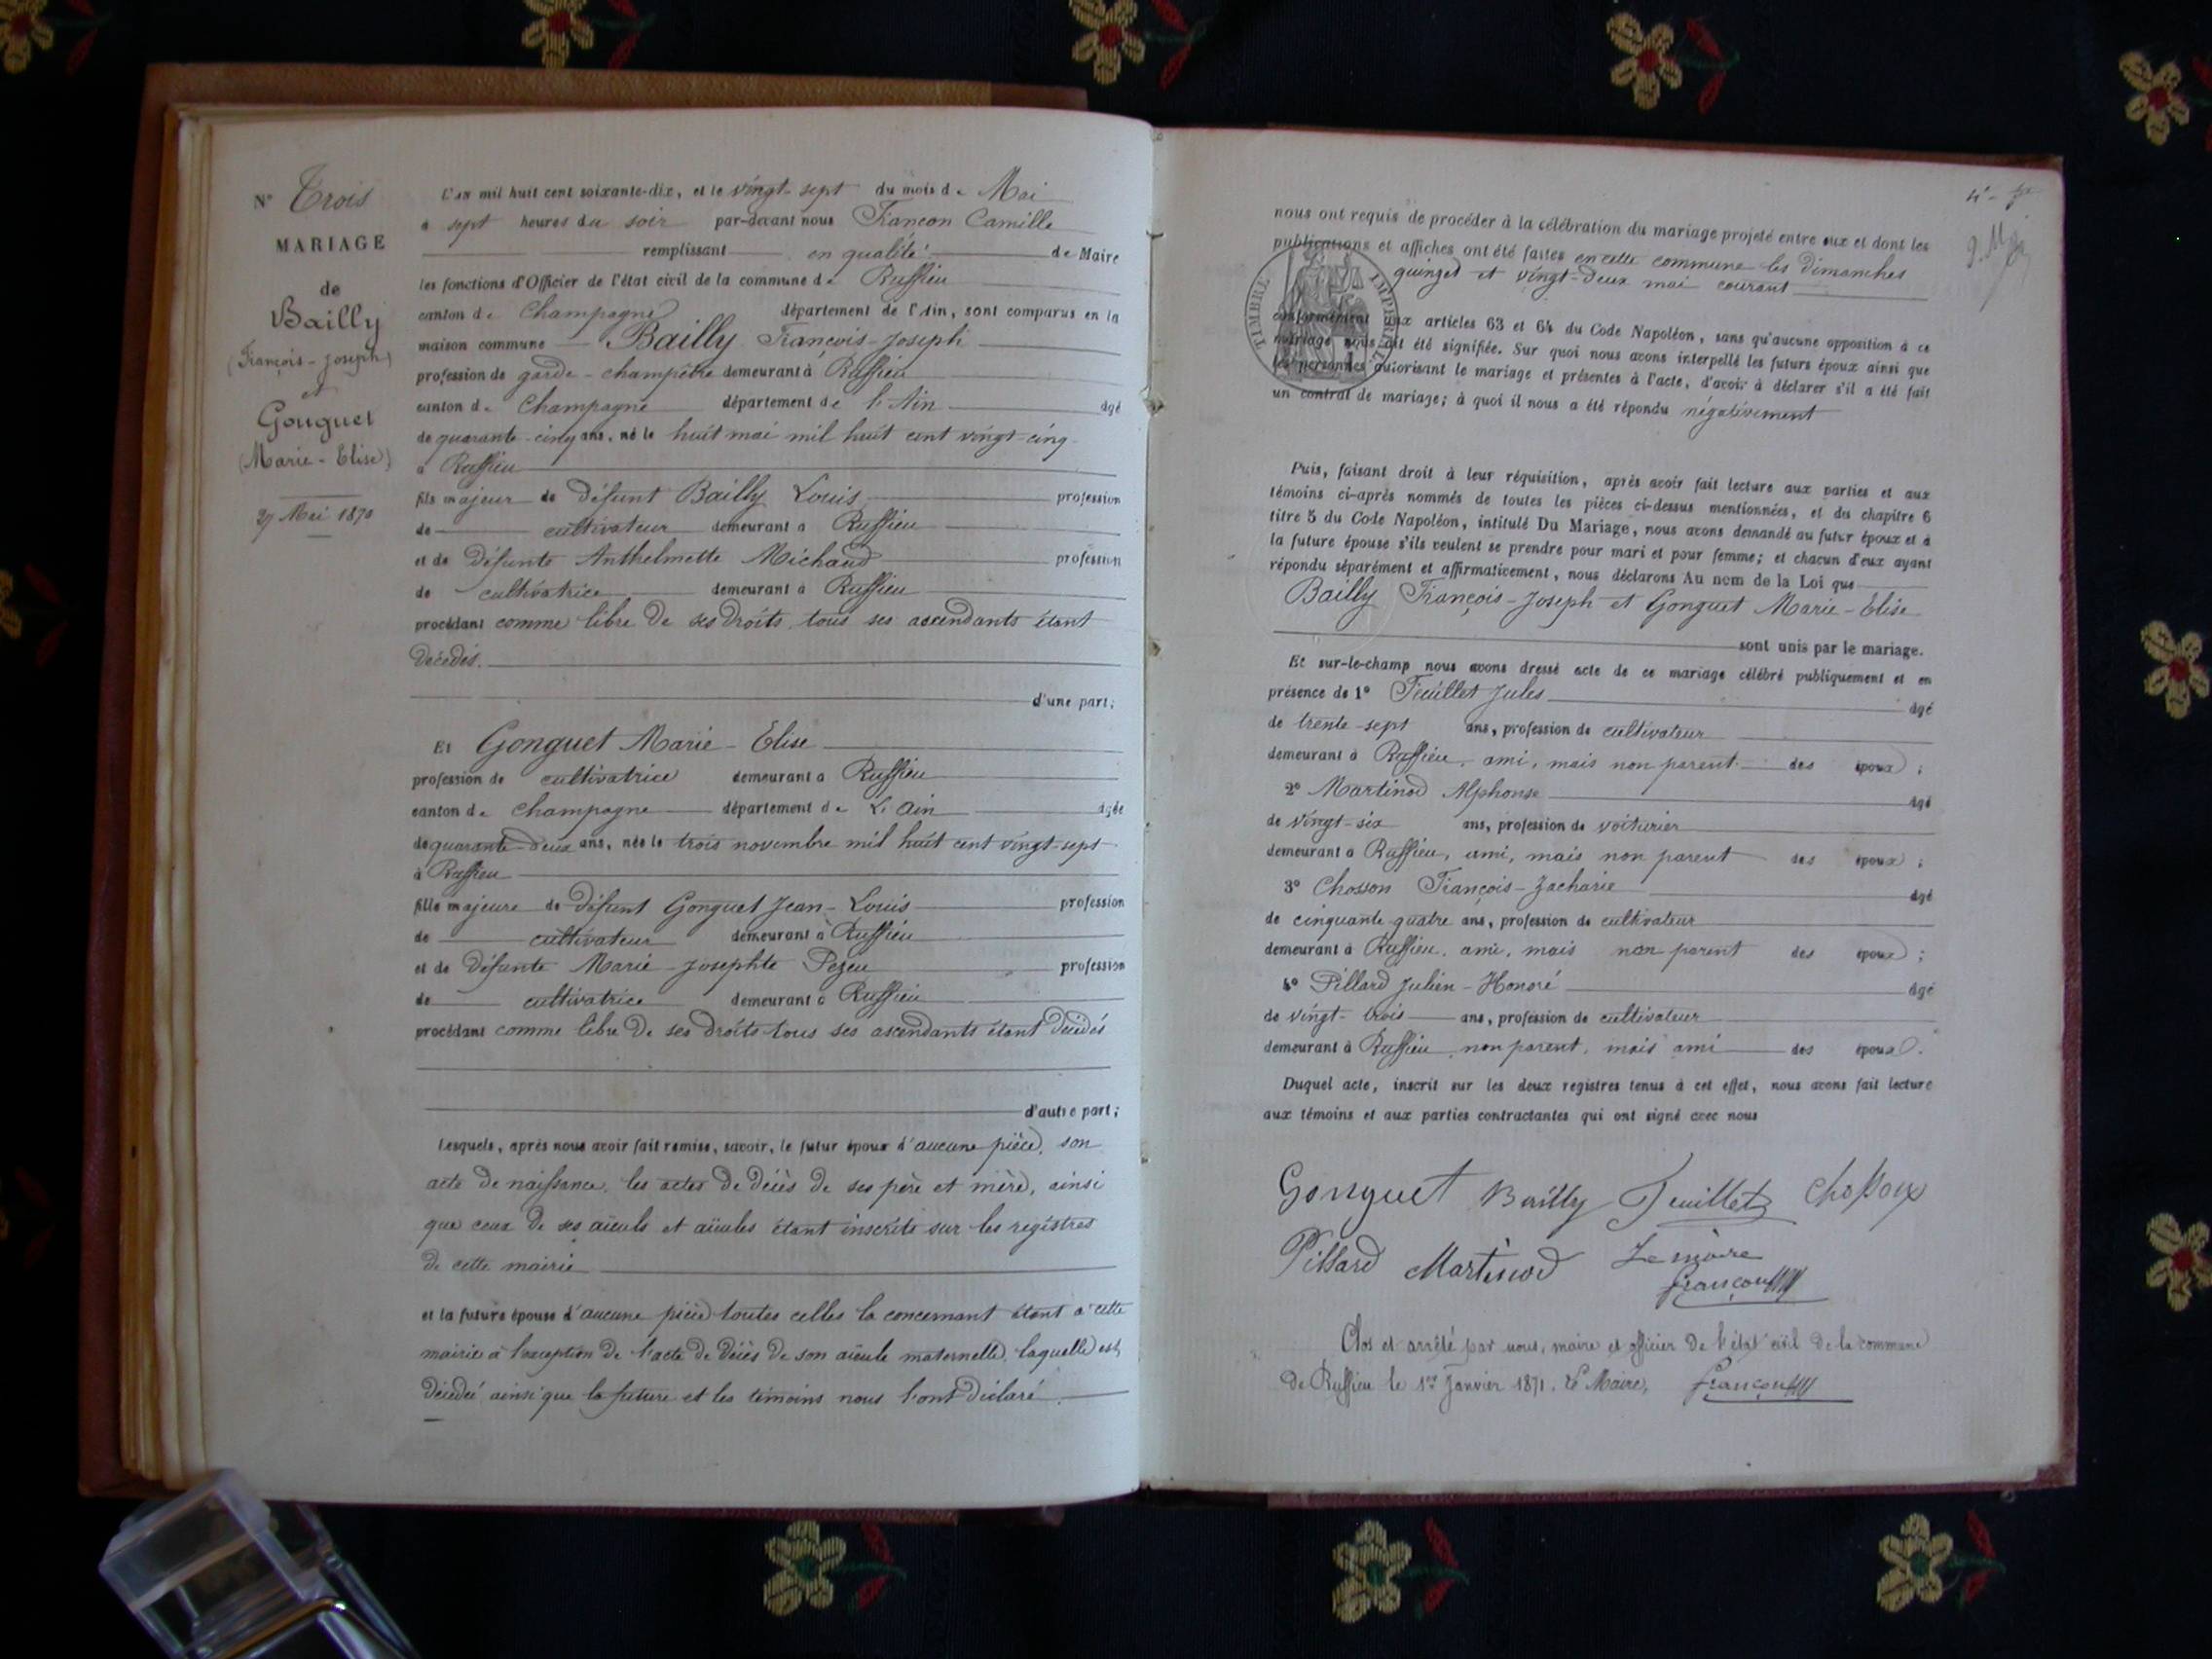 N° Trois
MARIAGE
de
Bailly
(François-Joseph)
et
Gonguet
(Marie-Elise)
27 Mai 1870
L'an mil huit cent soixante-dix, et le vingt-sept du mois de Mai
à sept heures du soir par-devant nous Françon Camille
remplissant en qualité de Maire
les fonctions d'Officier de l'état civil de la commune de Ruffieu
canton de Champagne département de l'Ain, sont comparus en la
maison commune Bailly François-Joseph
profession de garde-champêtre demeurant à Ruffieu
canton de Champagne département de l'Ain âgé
de quarante-cinq ans, né le huit mai mil huit cent vingt-cinq
à Ruffieu
fils majeur de défunt Bailly Louis profession
de cultivateur demeurant à Ruffieu
et de défunte Anthelmette Michaud profession
de cultivatrice demeurant à Ruffieu
procédant comme libre de ses droits, tous ses ascendants étant
décédés.
d'une part;
Et Gonguet Marie-Elise
profession de cultivatrice demeurant à Ruffieu
canton de Champagne département de L'Ain âgée
de quarante-deux ans, née le trois novembre mil huit cent vingt-sept
à Ruffieu
fille majeure de défunt Gonguet Jean-Louis profession
de cultivateur demeurant à Ruffieu
et de défunte Marie-Josephte Pezeu profession
de cultivatrice demeurant à Ruffieu
procédant comme libre de ses droits tous ses ascendants étant décédés
d'autre part;
Lesquels, après nous avoir fait remise, savoir, le futur époux d'aucune pièce, son
acte de naissance, les actes de décès de ses père et mère, ainsi
que ceux de ses aïeuls et aïeules étant inscrits sur les registres
de cette mairie
et la future épouse d'aucune pièce toutes celles la concernant étant à cette
mairie à l'exception de l'acte de décès de son aïeule maternelle, laquelle est
décédée ainsi que la future et les témoins nous l'ont déclaré.
nous ont requis de procéder à la célébration du mariage projeté entre eux et dont les
publications et affiches ont été faites en cette commune les dimanches
quinze et vingt-deux mai courant
TIMBRE IMPERIAL
conformément aux articles 63 et 64 du Code Napoléon, sans qu'aucune opposition à ce
mariage nous ait été signifiée. Sur quoi nous avons interpellé les futurs époux ainsi que
les personnes autorisant le mariage et présentes à l'acte, d'avoir à déclarer s'il a été fait
un contrat de mariage; à quoi il nous a été répondu négativement
Puis, faisant droit à leur réquisition, après avoir fait lecture aux parties et aux
témoins ci-après nommés de toutes les pièces ci-dessus mentionnées, et du chapitre 6
titre 5 du Code Napoléon, intitulé Du Mariage, nous avons demandé au futur époux et à
la future épouse s'ils veulent se prendre pour mari et pour femme; et chacun d'eux ayant
répondu séparément et affirmativement, nous déclarons Au nom de la Loi que
Bailly François-Joseph et Gonguet Marie-Elise
sont unis par le mariage.
Et sur-le-champ nous avons dressé acte de ce mariage célébré publiquement et en
présence de 1° Feuillet Jules âgé
de trente-sept ans, profession de cultivateur
demeurant à Ruffieu, ami, mais non parent des époux;
2° Martinod Alphonse âgé
de vingt-six ans, profession de voiturier
demeurant à Ruffieu, ami, mais non parent des époux;
3° Chosson François-Zacharie âgé
de cinquante-quatre ans, profession de cultivateur
demeurant à Ruffieu, ami, mais non parent des époux;
4° Pillard Julien-Honoré âgé
de vingt-trois ans, profession de cultivateur
demeurant à Ruffieu, non parent, mais ami des époux.
Duquel acte, inscrit sur les deux registres tenus à cet effet, nous avons fait lecture
aux témoins et aux parties contractantes qui ont signé avec nous
Gonguet Bailly Feuillet Chosson
Pillard Martinod Le maire
françon
Clos et arrêté par nous, maire et officier de l'état civil de la commune
de Ruffieu le 1er Janvier 1871. Le Maire, françon